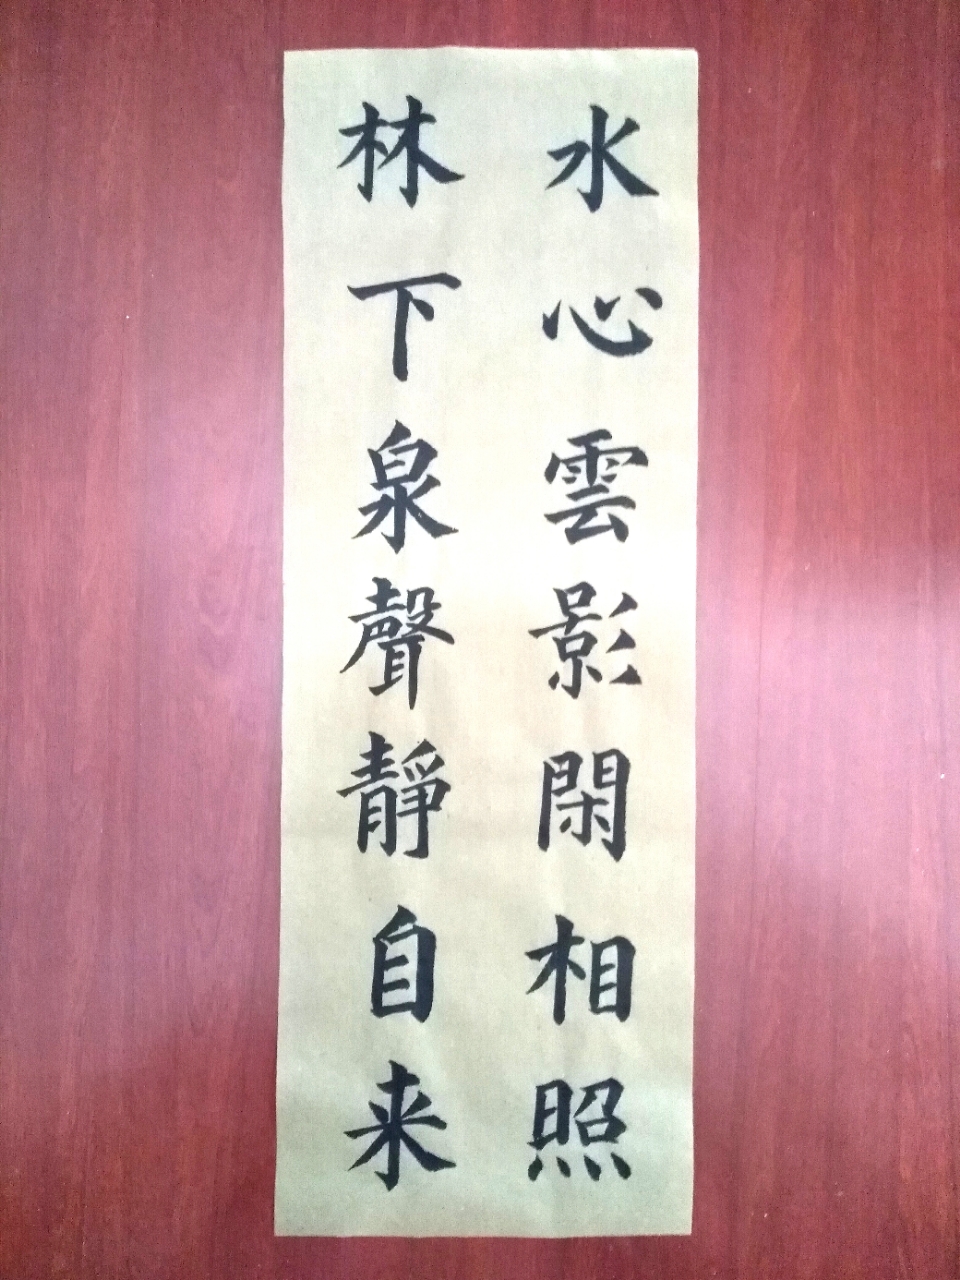 水心雲影閑相照
林下泉聲靜自来